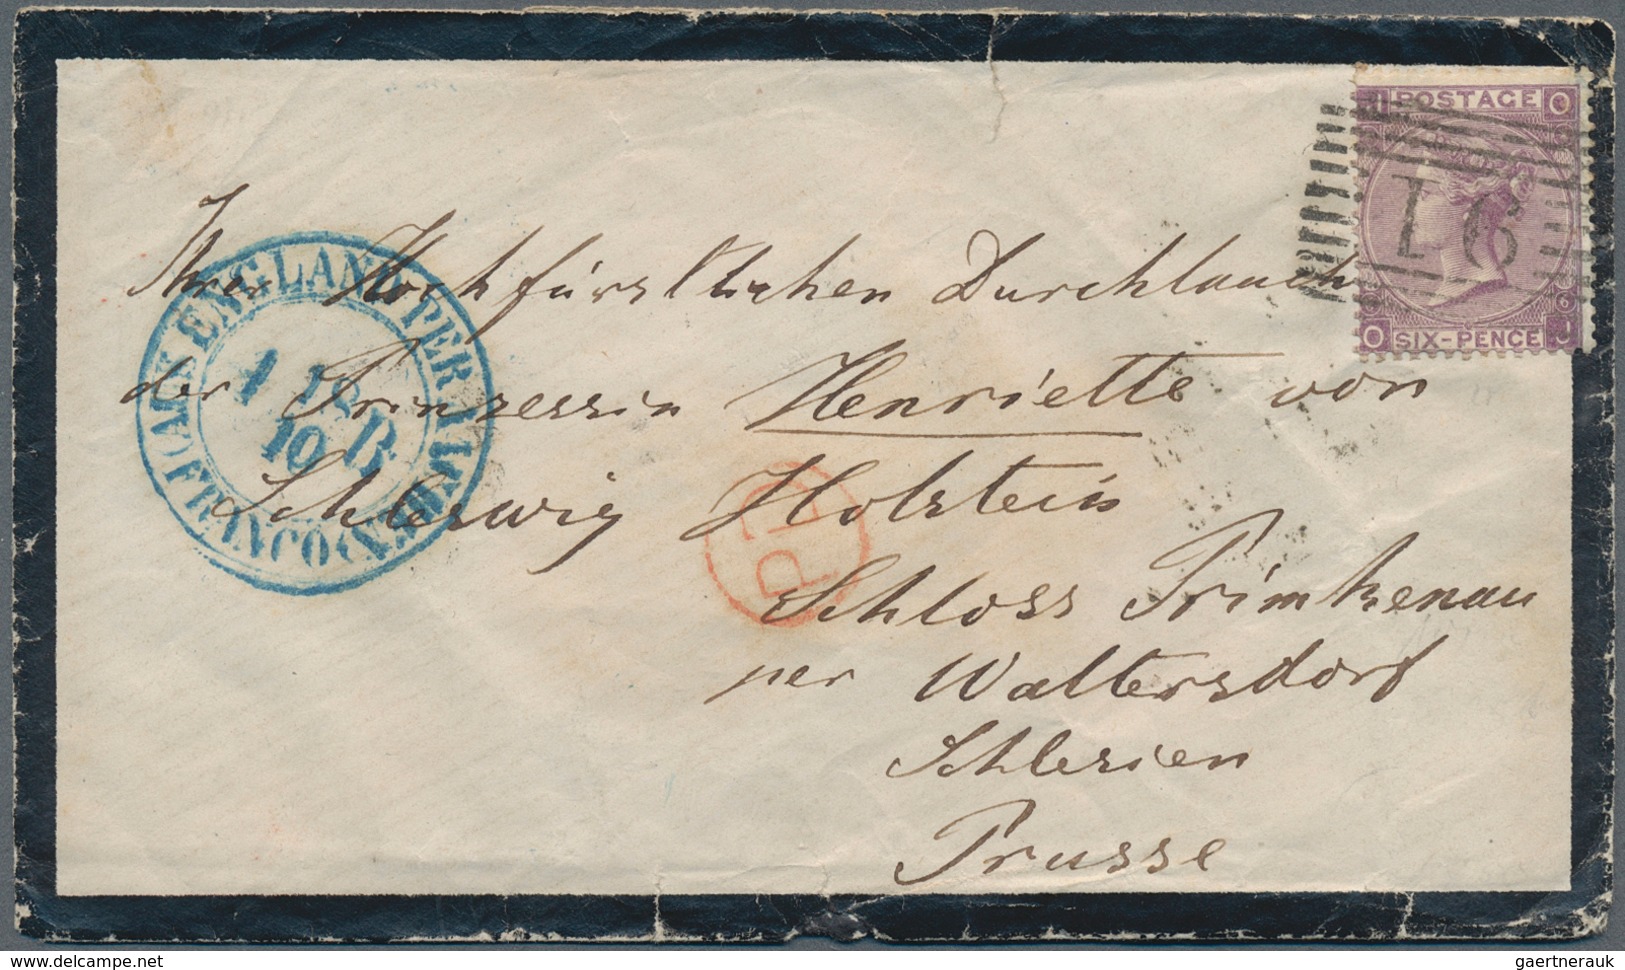 POSTAGE
I O
I 6
O J
6
SIX-PENCE
Ihrer Hochfürstlichen Durchlauch
der Prinzessin Henriette von
Schleswig Holstein
Schloss Primkenau
per Waltersdorf
Schlesien
Prusse
ENGLAND PER
FRANCO
10
PD
delcampe.net
gaertnerauk